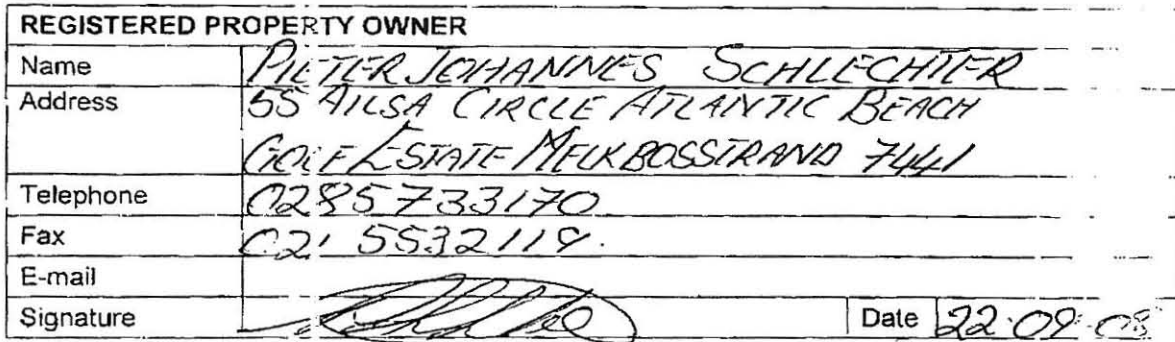 REGISTERED PROPERTY OWNER
Name PIETER JOHANNES SCHLECHTER
Address 55 AILSA CIRCLE ATLANTIC BEACH
GOLF ESTATE MELKBOSSTRAND 7441
Telephone 0285733170
Fax 021 5532119.
E-mail
Signature Date 22.09.08